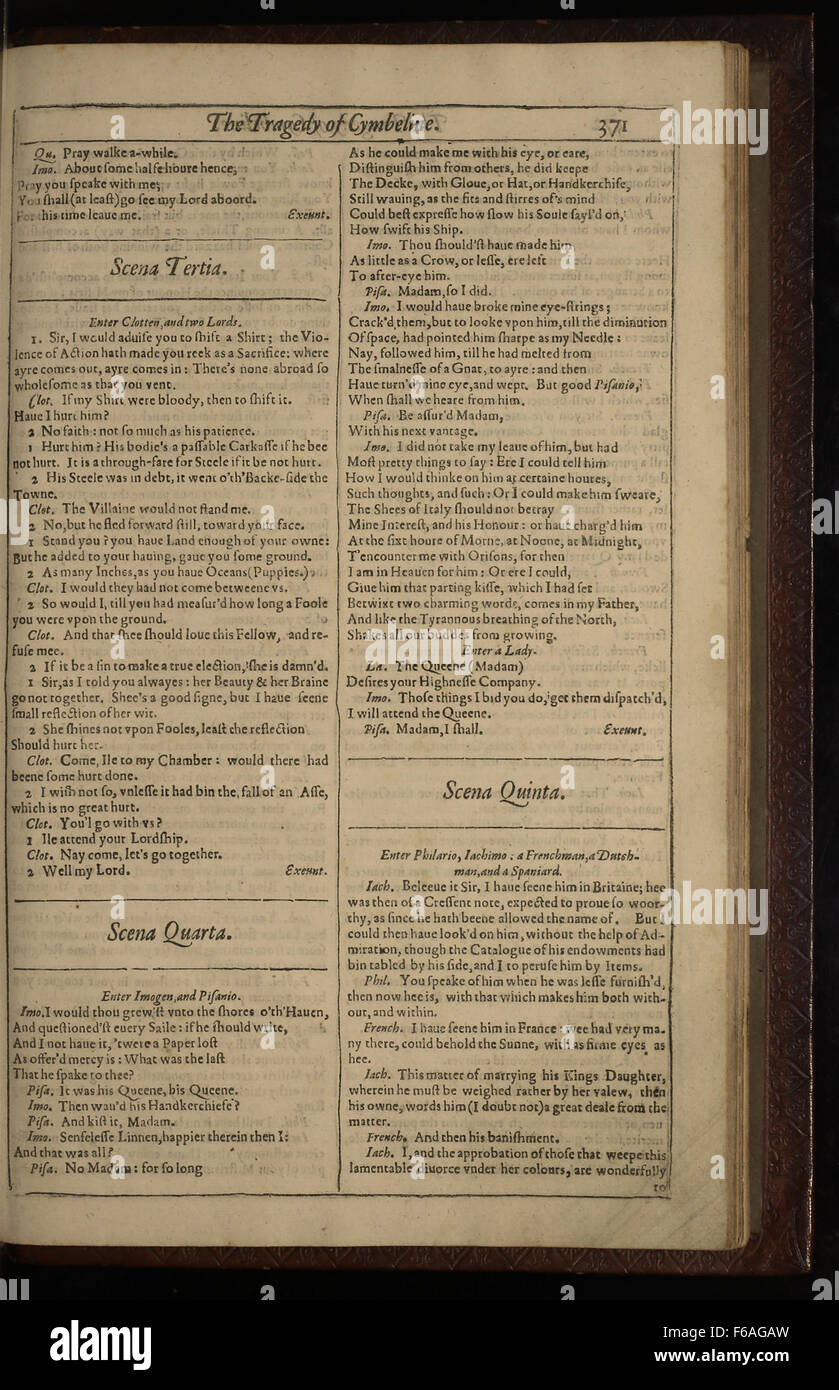 The Tragedy of Cymbeline. 371
Qu. Pray walke a-while.
Imo. About ſome halfe houre hence,
Pray you ſpeake with me;
You ſhall (at leaſt) go ſee my Lord aboord.
For this time leaue me. Exeunt.
Scena Tertia.
Enter Clotten, and two Lords.
1. Sir, I would aduiſe you to ſhift a Shirt; the Vio-
lence of Action hath made you reek as a Sacrifice: where
ayre comes out, ayre comes in: There's none abroad ſo
wholeſome as that you vent.
Clot. If my Shirt were bloody, then to ſhift it.
Haue I hurt him?
2 No faith: not ſo much as his patience.
1 Hurt him? His bodie's a paſſable Carkaſſe if he bee
not hurt. It is a through-fare for Steele if it be not hurt.
2 His Steele was in debt, it went o'th'Backe-ſide the
Towne.
Clot. The Villaine would not ſtand me.
2 No, but he fled forward ſtill, toward your face.
1 Stand you? you haue Land enough of your owne:
But he added to your hauing, gaue you ſome ground.
2 As many Inches, as you haue Oceans (Puppies.)
Clot. I would they had not come betweene vs.
2 So would I, till you had meaſur'd how long a Foole
you were vpon the ground.
Clot. And that ſhee ſhould loue this Fellow, and re-
fuſe mee.
2 If it be a ſin to make a true election, ſhe is damn'd.
1 Sir, as I told you alwayes: her Beauty & her Braine
go not together. Shee's a good ſigne, but I haue ſeene
ſmall reflection of her wit.
2 She ſhines not vpon Fooles, leaſt the reflection
Should hurt her.
Clot. Come, Ile to my Chamber: would there had
beene ſome hurt done.
2 I wiſh not ſo, vnleſſe it had bin the fall of an Aſſe,
which is no great hurt.
Clot. You'l go with vs?
1 Ile attend your Lordſhip.
Clot. Nay come, let's go together.
2 Well my Lord. Exeunt.
Scena Quarta.
Enter Imogen, and Piſanio.
Imo. I would thou grew'ſt vnto the ſhores o'th'Hauen,
And queſtioned'ſt euery Saile: if he ſhould write,
And I not haue it, 'twere a Paper loſt
As offer'd mercy is: What was the laſt
That he ſpake to thee?
Piſa. It was his Queene, his Queene.
Imo. Then wau'd his Handkerchiefe?
Piſa. And kiſt it, Madam.
Imo. Senſeleſſe Linnen, happier therein then I:
And that was all?
Piſa. No Madam: for ſo long
As he could make me with his eye, or eare,
Diſtinguiſh him from others, he did keepe
The Decke, with Gloue, or Hat, or Handkerchife,
Still wauing, as the fits and ſtirres of's mind
Could beſt expreſſe how ſlow his Soule ſayl'd on,
How ſwift his Ship.
Imo. Thou ſhould'ſt haue made him
As little as a Crow, or leſſe, ere left
To after-eye him.
Piſa. Madam, ſo I did.
Imo. I would haue broke mine eye-ſtrings;
Crack'd them, but to looke vpon him, till the diminution
Of ſpace, had pointed him ſharpe as my Needle:
Nay, followed him, till he had melted from
The ſmalneſſe of a Gnat, to ayre: and then
Haue turn'd mine eye, and wept. But good Piſanio,
When ſhall we heare from him.
Piſa. Be aſſur'd Madam,
With his next vantage.
Imo. I did not take my leaue of him, but had
Moſt pretty things to ſay: Ere I could tell him
How I would thinke on him at certaine houres,
Such thoughts, and ſuch: Or I could make him ſweare,
The Shees of Italy ſhould not betray
Mine Intereſt, and his Honour: or haue charg'd him
At the ſixt houre of Morne, at Noone, at Midnight,
T'encounter me with Oriſons, for then
I am in Heauen for him: Or ere I could,
Giue him that parting kiſſe, which I had ſet
Betwixt two charming words, comes in my Father,
And like the Tyrannous breathing of the North,
Shakes all our buddes from growing.
Enter a Lady.
La. The Queene (Madam)
Deſires your Highneſſe Company.
Imo. Thoſe things I bid you do, get them diſpatch'd,
I will attend the Queene.
Piſa. Madam, I ſhall. Exeunt.
Scena Quinta.
Enter Philario, Iachimo: a Frenchman, a Dutch-
man, and a Spaniard.
Iach. Beleeue it Sir, I haue ſeene him in Britaine; hee
was then of a Creſſent note, expected to proue ſo woor-
thy, as ſince he hath beene allowed the name of. But I
could then haue look'd on him, without the help of Ad-
miration, though the Catalogue of his endowments had
bin tabled by his ſide, and I to peruſe him by Items.
Phil. You ſpeake of him when he was leſſe furniſh'd,
then now hee is, with that which makes him both with-
out, and within.
French. I haue ſeene him in France: wee had very ma-
ny there, could behold the Sunne, with as firme eyes as
hee.
Iach. This matter of marrying his Kings Daughter,
wherein he muſt be weighed rather by her valew, then
his owne, words him (I doubt not) a great deale from the
matter.
French. And then his baniſhment.
Iach. I, and the approbation of thoſe that weepe this
lamentable diuorce vnder her colours, are wonderfully
to
alamy
Image ID: F6AGAW
www.alamy.com